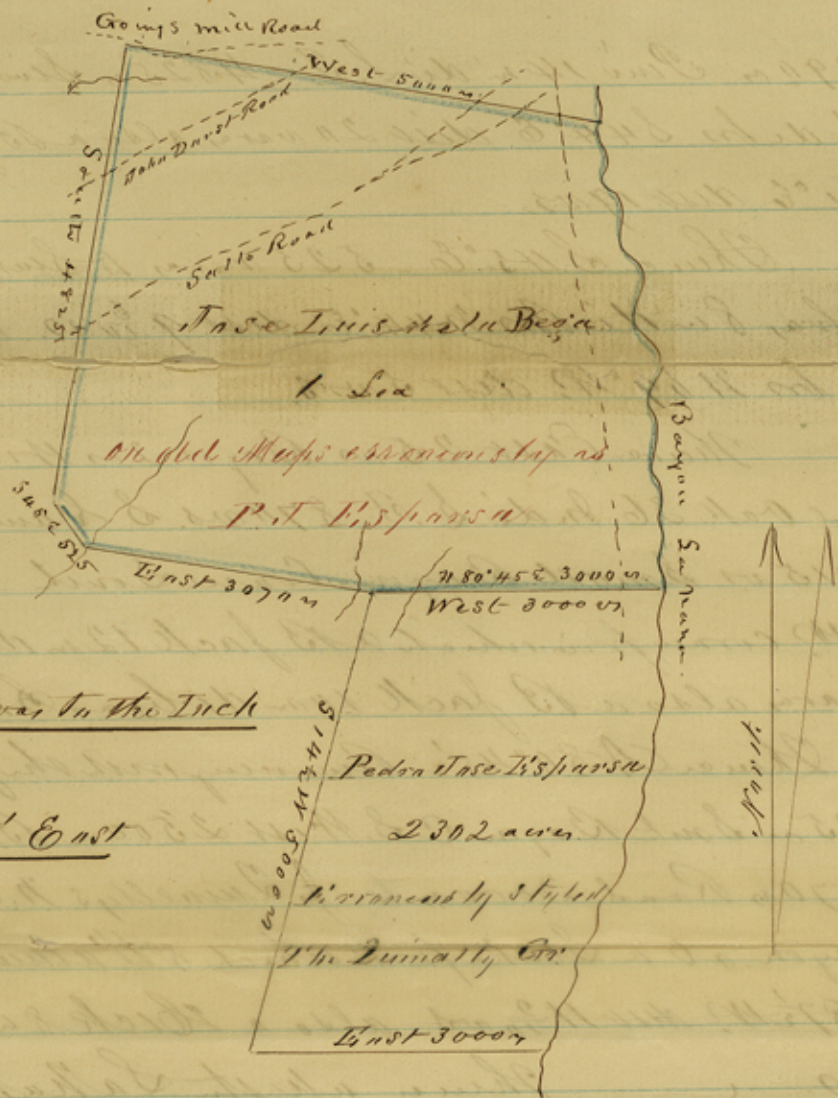 Goings mill Road
West 5000 vs.
John Durst Road
South 4825
Salto Road
Jose Luis de la Bega
1 Lea
on old Maps erroneously as
P. J. Esparsa
Bayou Lanana
S 45 E 525
East 3070 vs
N 80° 45 E 3000 vs
West 3000 vs
to the Inch
East
North
S 14 E 5000 vs
Pedro Jose Esparsa
2302 acres
Erroneously Styled
The Quinalty Gr.
East 3000 vs